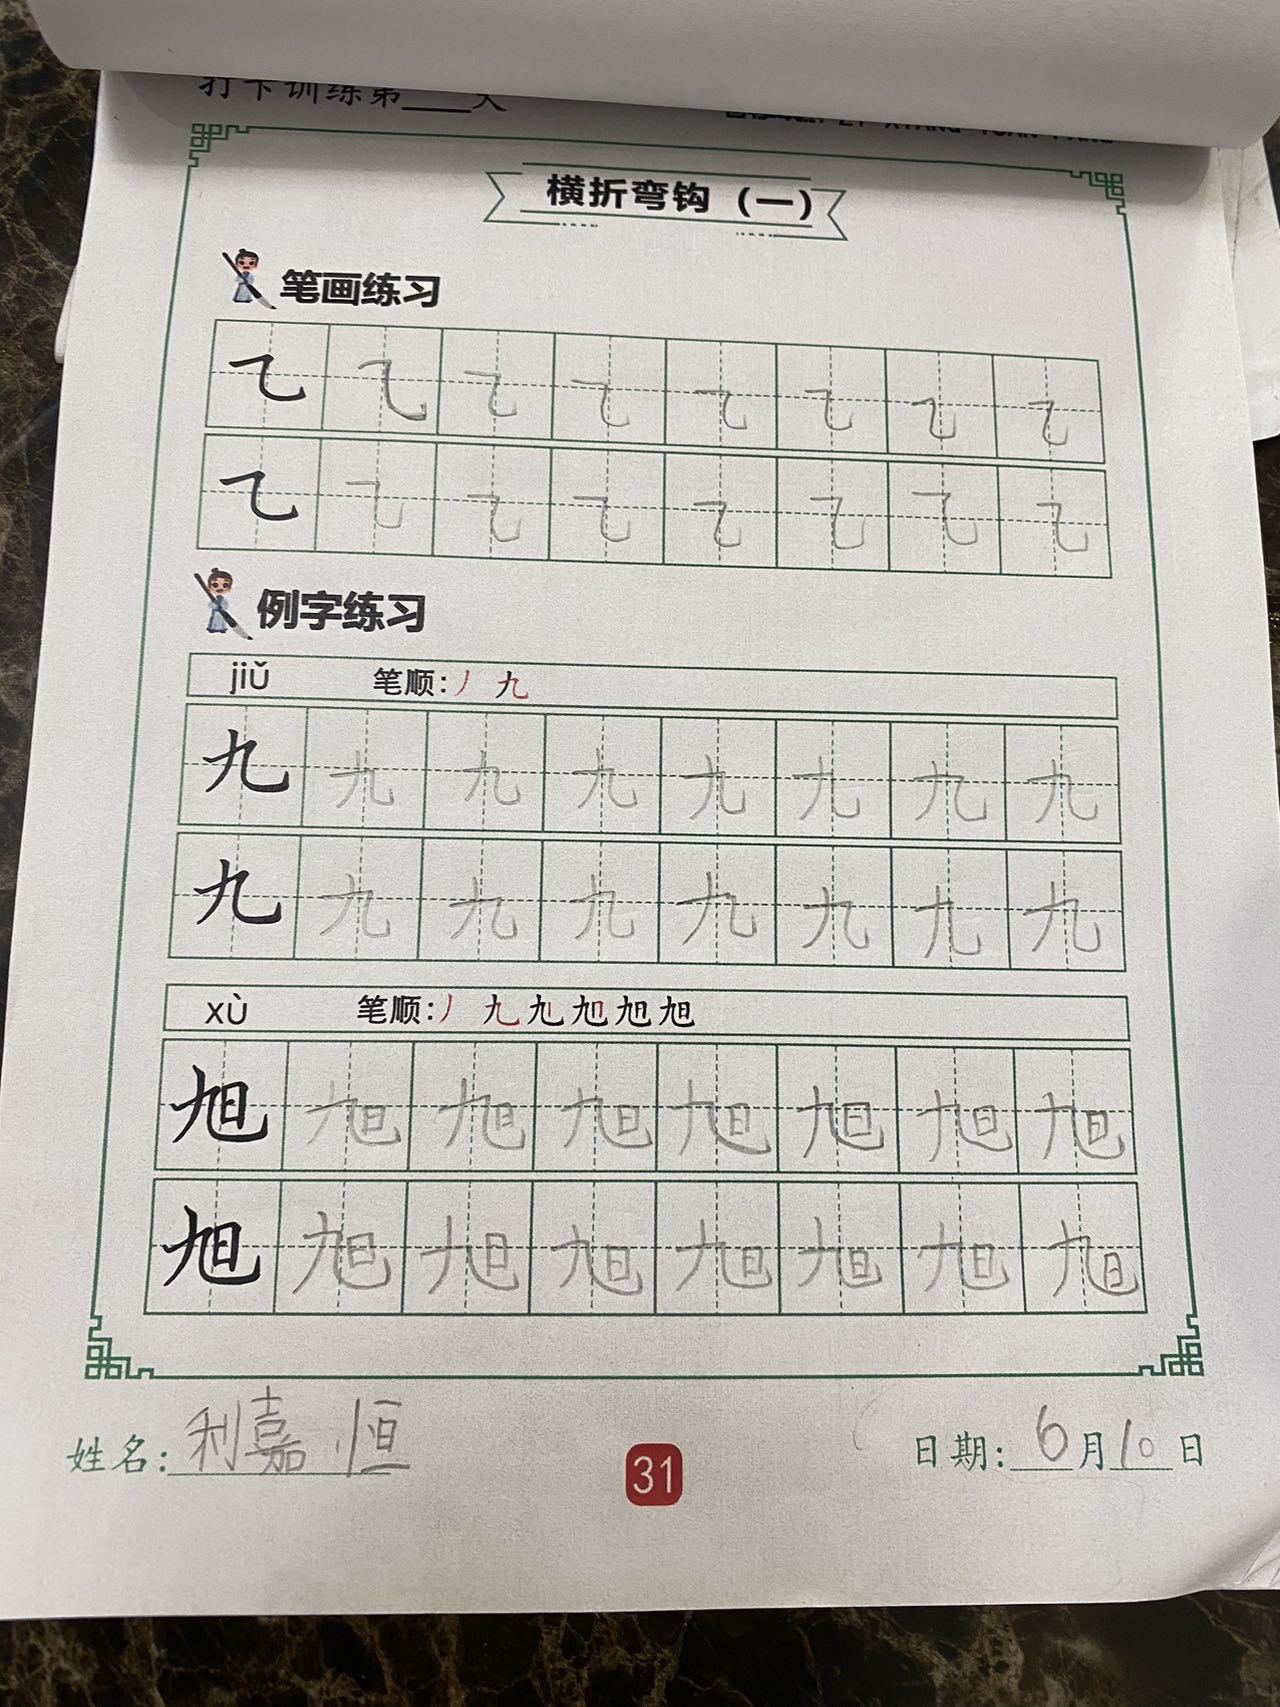 打卡训练第___天
横折弯钩（一）
笔画练习
㇈ ㇈ ㇈ ㇈ ㇈ ㇈ ㇈ ㇈
㇈ ㇈ ㇈ ㇈ ㇈ ㇈ ㇈ ㇈
例字练习
jiǔ 笔顺:丿 九
九 九 九 九 九 九 九 九
九 九 九 九 九 九 九 九
xù 笔顺:
旭 旭 旭 旭 旭 旭 旭 旭
旭 旭 旭 旭 旭 旭 旭 旭
姓名: 利嘉恒
31
日期: 6月10日